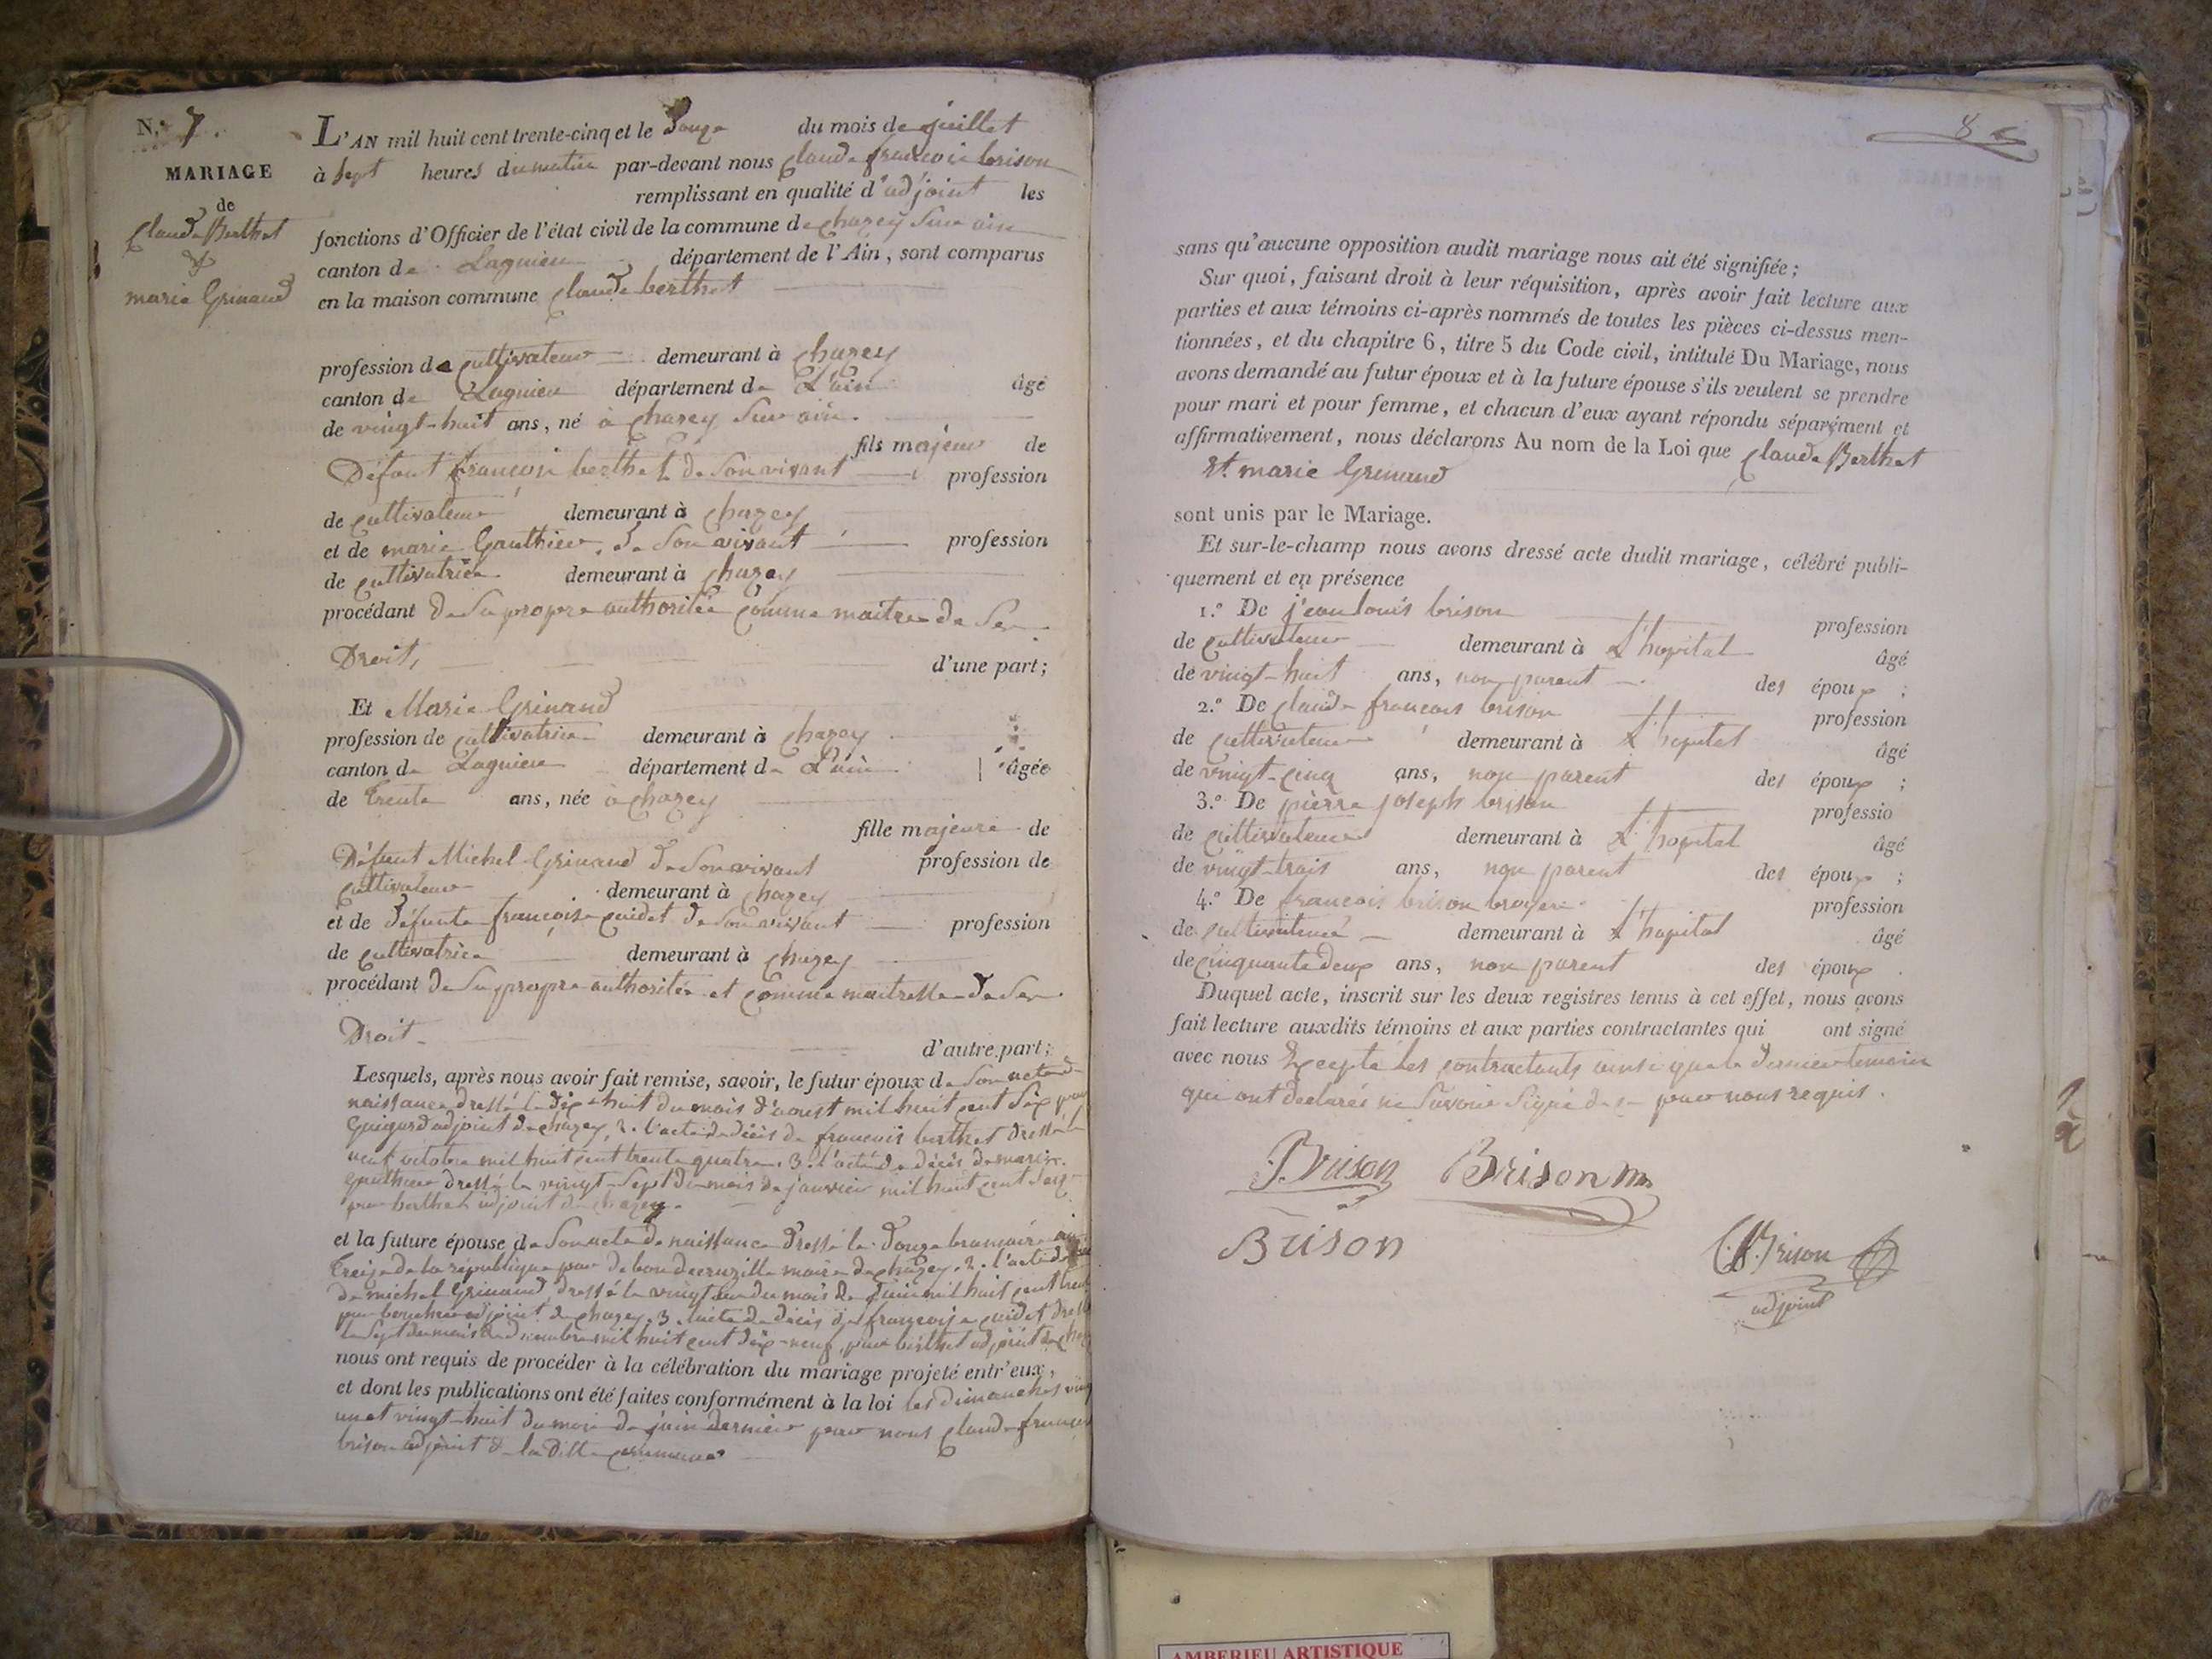 N.° 7.
MARIAGE
de
Claude Berthet
&
marie Grinand
L'AN mil huit cent trente-cinq et le Douze du mois de juillet
à sept heures du matin par-devant nous Claude françois brison
remplissant en qualité d'adjoint les
fonctions d'Officier de l'état civil de la commune de chazey Sur ain
canton de Lagnieu département de l'Ain, sont comparus
en la maison commune Claude berthet
profession de cultivateur demeurant à chazey
canton de Lagnieu département de L'ain âgé
de vingt-huit ans, né à chazey Sur ain.
fils majeur de
Défunt françois berthet de Son vivant profession
de cultivateur demeurant à chazey
et de marie Gauthier, de Son vivant profession
de cultivatrice demeurant à chazey
procédant de Sa propre authoritée comme maitre de Ses
Droit, d'une part;
Et Marie Grinand
profession de cultivatrice demeurant à chazey
canton de Lagnieu département de L'ain âgée
de trente ans, née à chazey
fille majeure de
Défunt Michel Grinand de Son vivant profession de
cultivateur demeurant à chazey
et de défunte françoise cuidet de Son vivant profession
de cultivatrice demeurant à chazey
procédant de Sa propre authoritée et comme maitresse de Ses
Droit d'autre part;
Lesquels, après nous avoir fait remise, savoir, le futur époux de Son acte de
naissance dressé le dix-huit du mois d'aoust mil huit cent Six par
Guigard adjoint de chazey, 2. l'acte de décès de françois berthet dressé le
neuf octobre mil huit cent trente quatre. 3. l'acte de décès de marie
gauthier dressé le vingt-Sept du mois de janvier mil huit cent
par berthet adjoint de chazey.
et la future épouse de Son acte de naissance dressé le Douze brumaire an
treize de la république par maire de chazey. 2. l'acte de
de michel Grinand, dressé le vingt du mois de juin mil huit cent
par adjoint de chazey. 3. l'acte de décès de françoise cuidet dressé
le Sept du mois de mil huit cent dix-neuf, par berthet adjoint de
nous ont requis de procéder à la célébration du mariage projeté entr'eux,
et dont les publications ont été faites conformément à la loi les dimanches vingt
un et vingt-huit du mois de juin dernier par nous Claude françois
brison adjoint de la ditte commune
8
sans qu'aucune opposition audit mariage nous ait été signifiée;
Sur quoi, faisant droit à leur réquisition, après avoir fait lecture aux
parties et aux témoins ci-après nommés de toutes les pièces ci-dessus men-
tionnées, et du chapitre 6, titre 5 du Code civil, intitulé Du Mariage, nous
avons demandé au futur époux et à la future épouse s'ils veulent se prendre
pour mari et pour femme, et chacun d'eux ayant répondu séparément et
affirmativement, nous déclarons Au nom de la Loi que Claude Berthet
Et marie Grinand
sont unis par le Mariage.
Et sur-le-champ nous avons dressé acte dudit mariage, célébré publi-
quement et en présence
1.° De jean louis brison profession
de cultivateur demeurant à L'hopital âgé
de vingt-huit ans, non parent des époux;
2.° De claude françois brison profession
de cultivateur demeurant à L'hopital âgé
de vingt-cinq ans, non parent des époux;
3.° De pierre joseph brison professio
de cultivateur demeurant à L'hopital âgé
de vingt-trois ans, non parent des époux;
4.° De françois brison bruyere profession
de cultivateur demeurant à L'hopital âgé
de cinquante deux ans, non parent des époux.
Duquel acte, inscrit sur les deux registres tenus à cet effet, nous avons
fait lecture auxdits témoins et aux parties contractantes qui ont signé
avec nous Excepté les contractants ainsi que le dernier temoin
qui ont declarés ne Savoir Signé de ce par nous requis.
Brison Brison
Brison
Brison
adjoint
AMBERIEU ARTISTIQUE